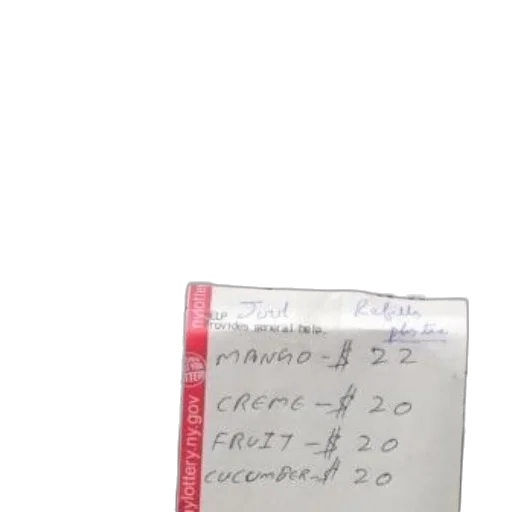 Juul Refills
ELP
rovides general help.
plus tax
MANGO - $ 22
CREME - $ 20
FRUIT - $ 20
CUCUMBER - $ 20
nylotte
ylottery.ny.gov